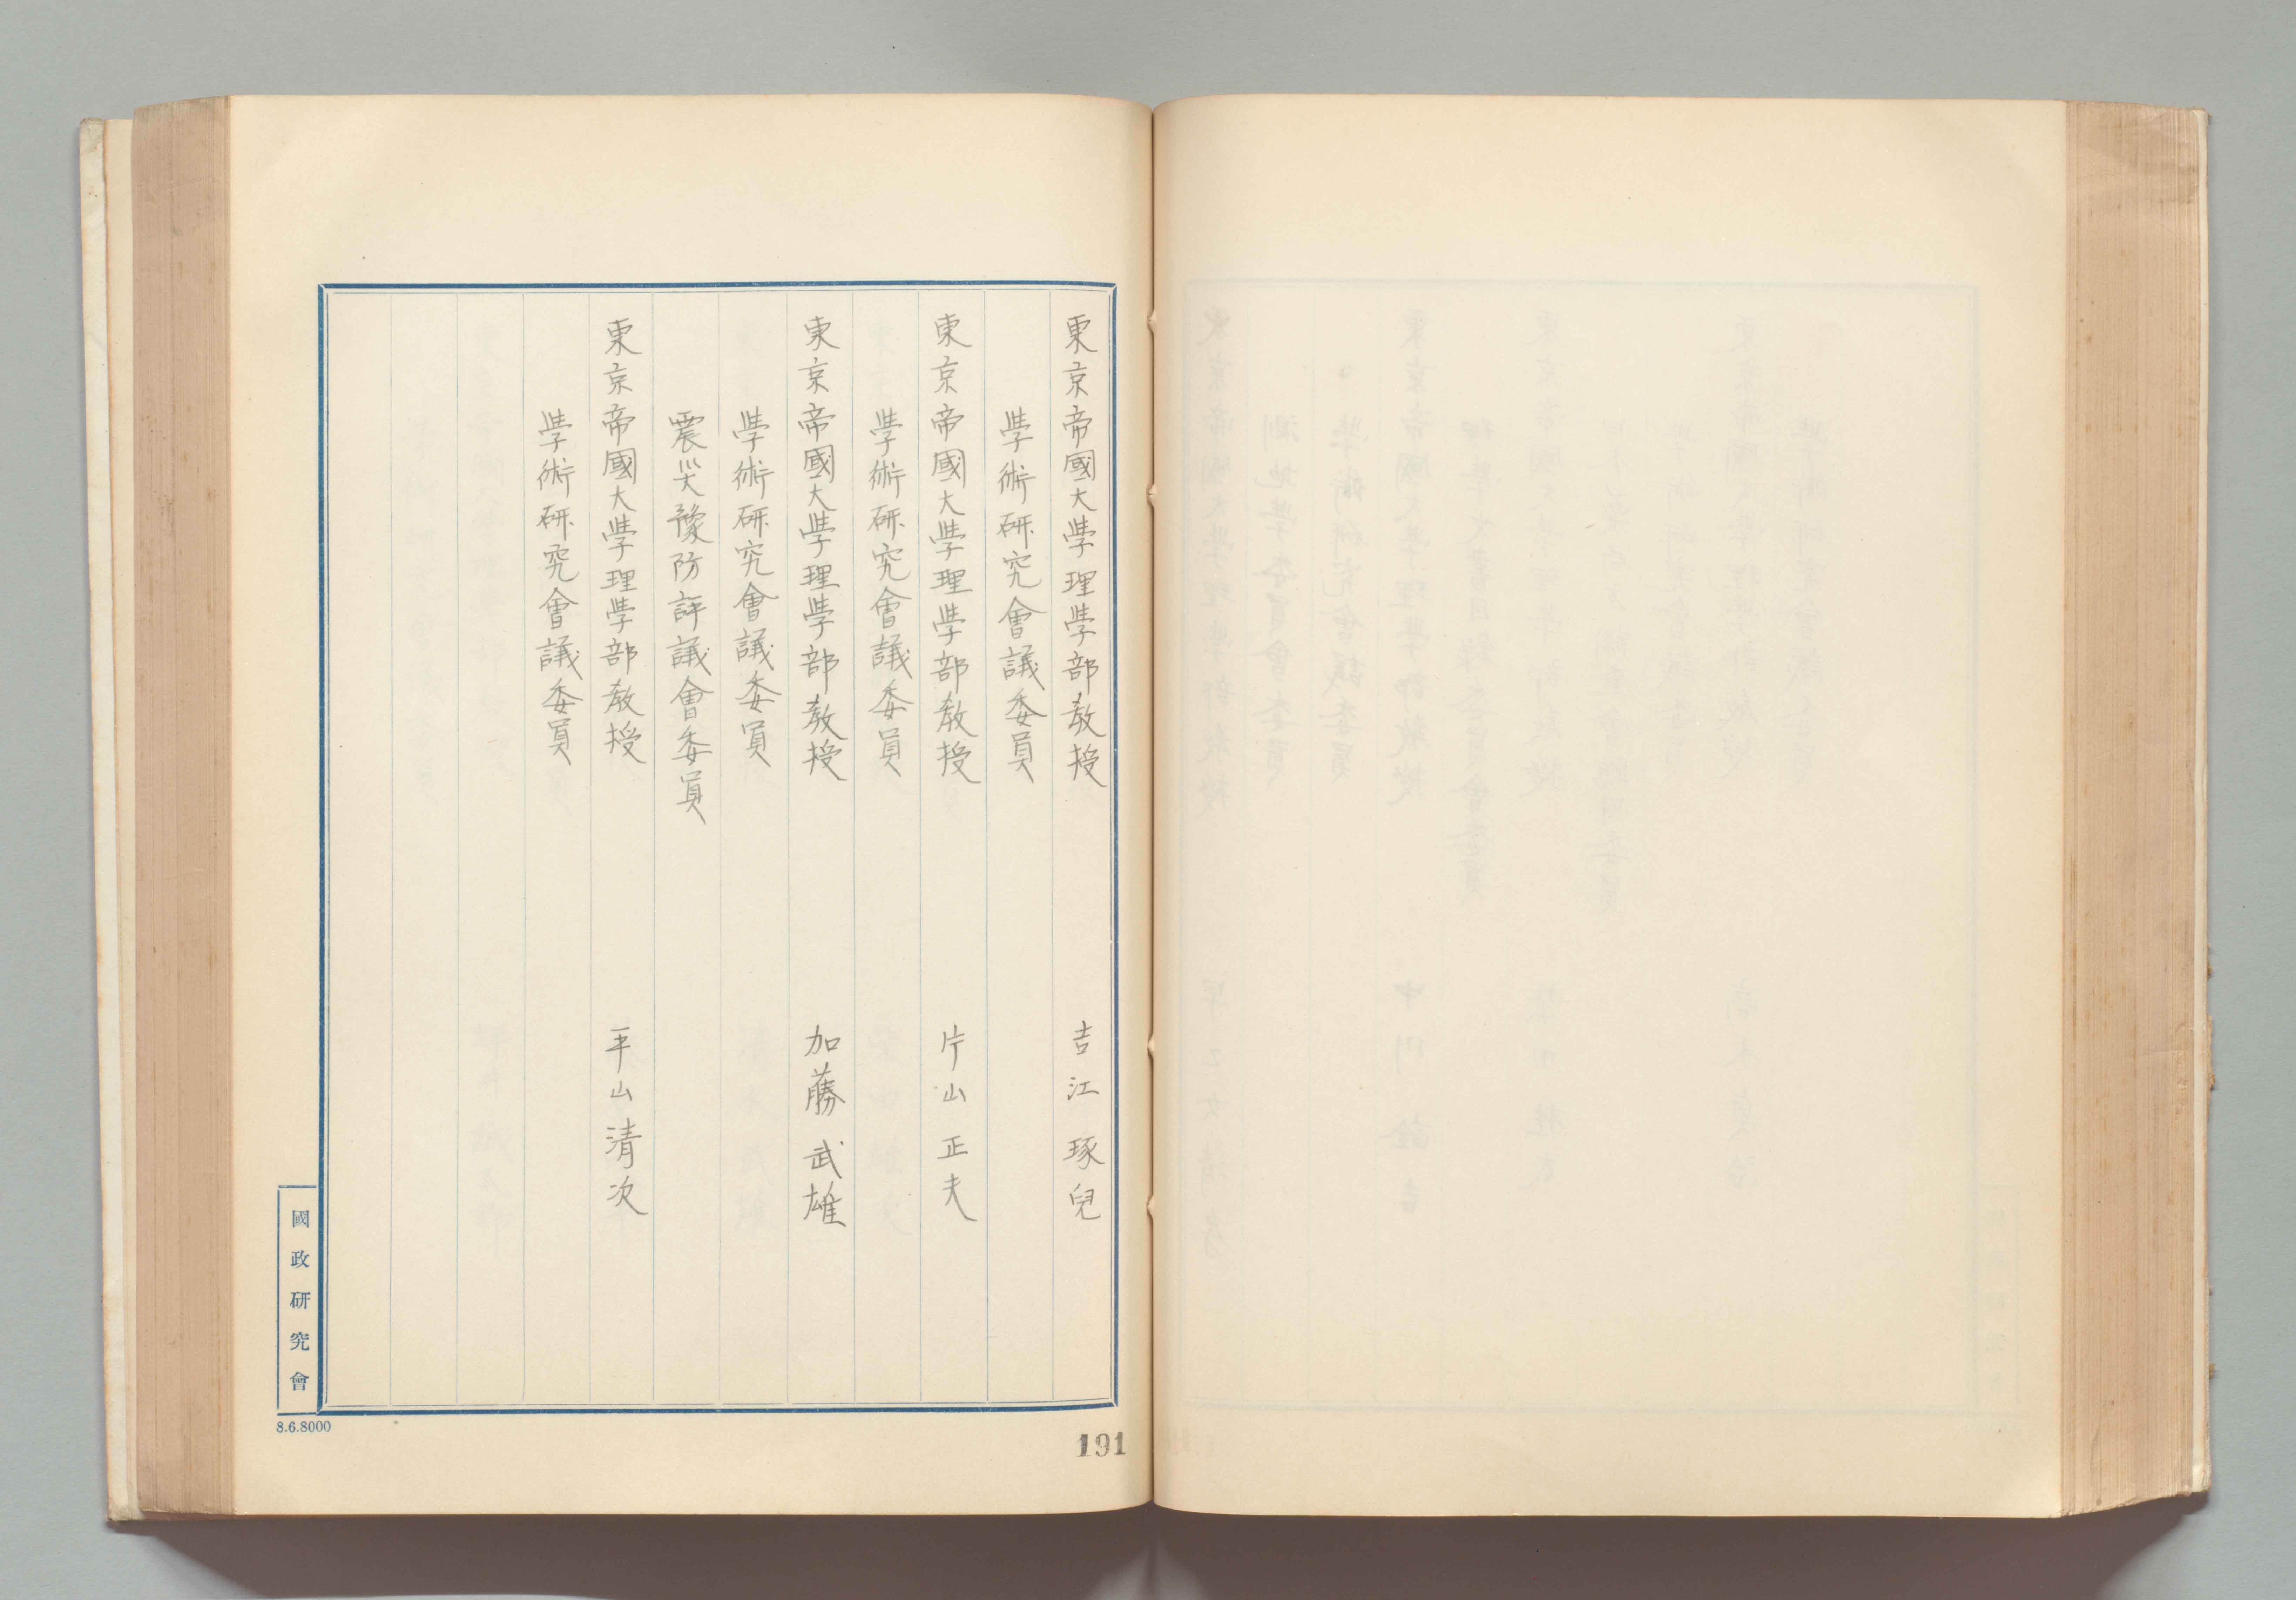 東京帝國大學理學部教授 吉江琢兒
學術研究會議委員
東京帝國大學理學部教授 片山正夫
學術研究會議委員
東京帝國大學理學部教授 加藤武雄
學術研究會議委員
震災豫防評議會委員
東京帝國大學理學部教授 平山清次
學術研究會議委員
國政研究會
8.6.8000
191